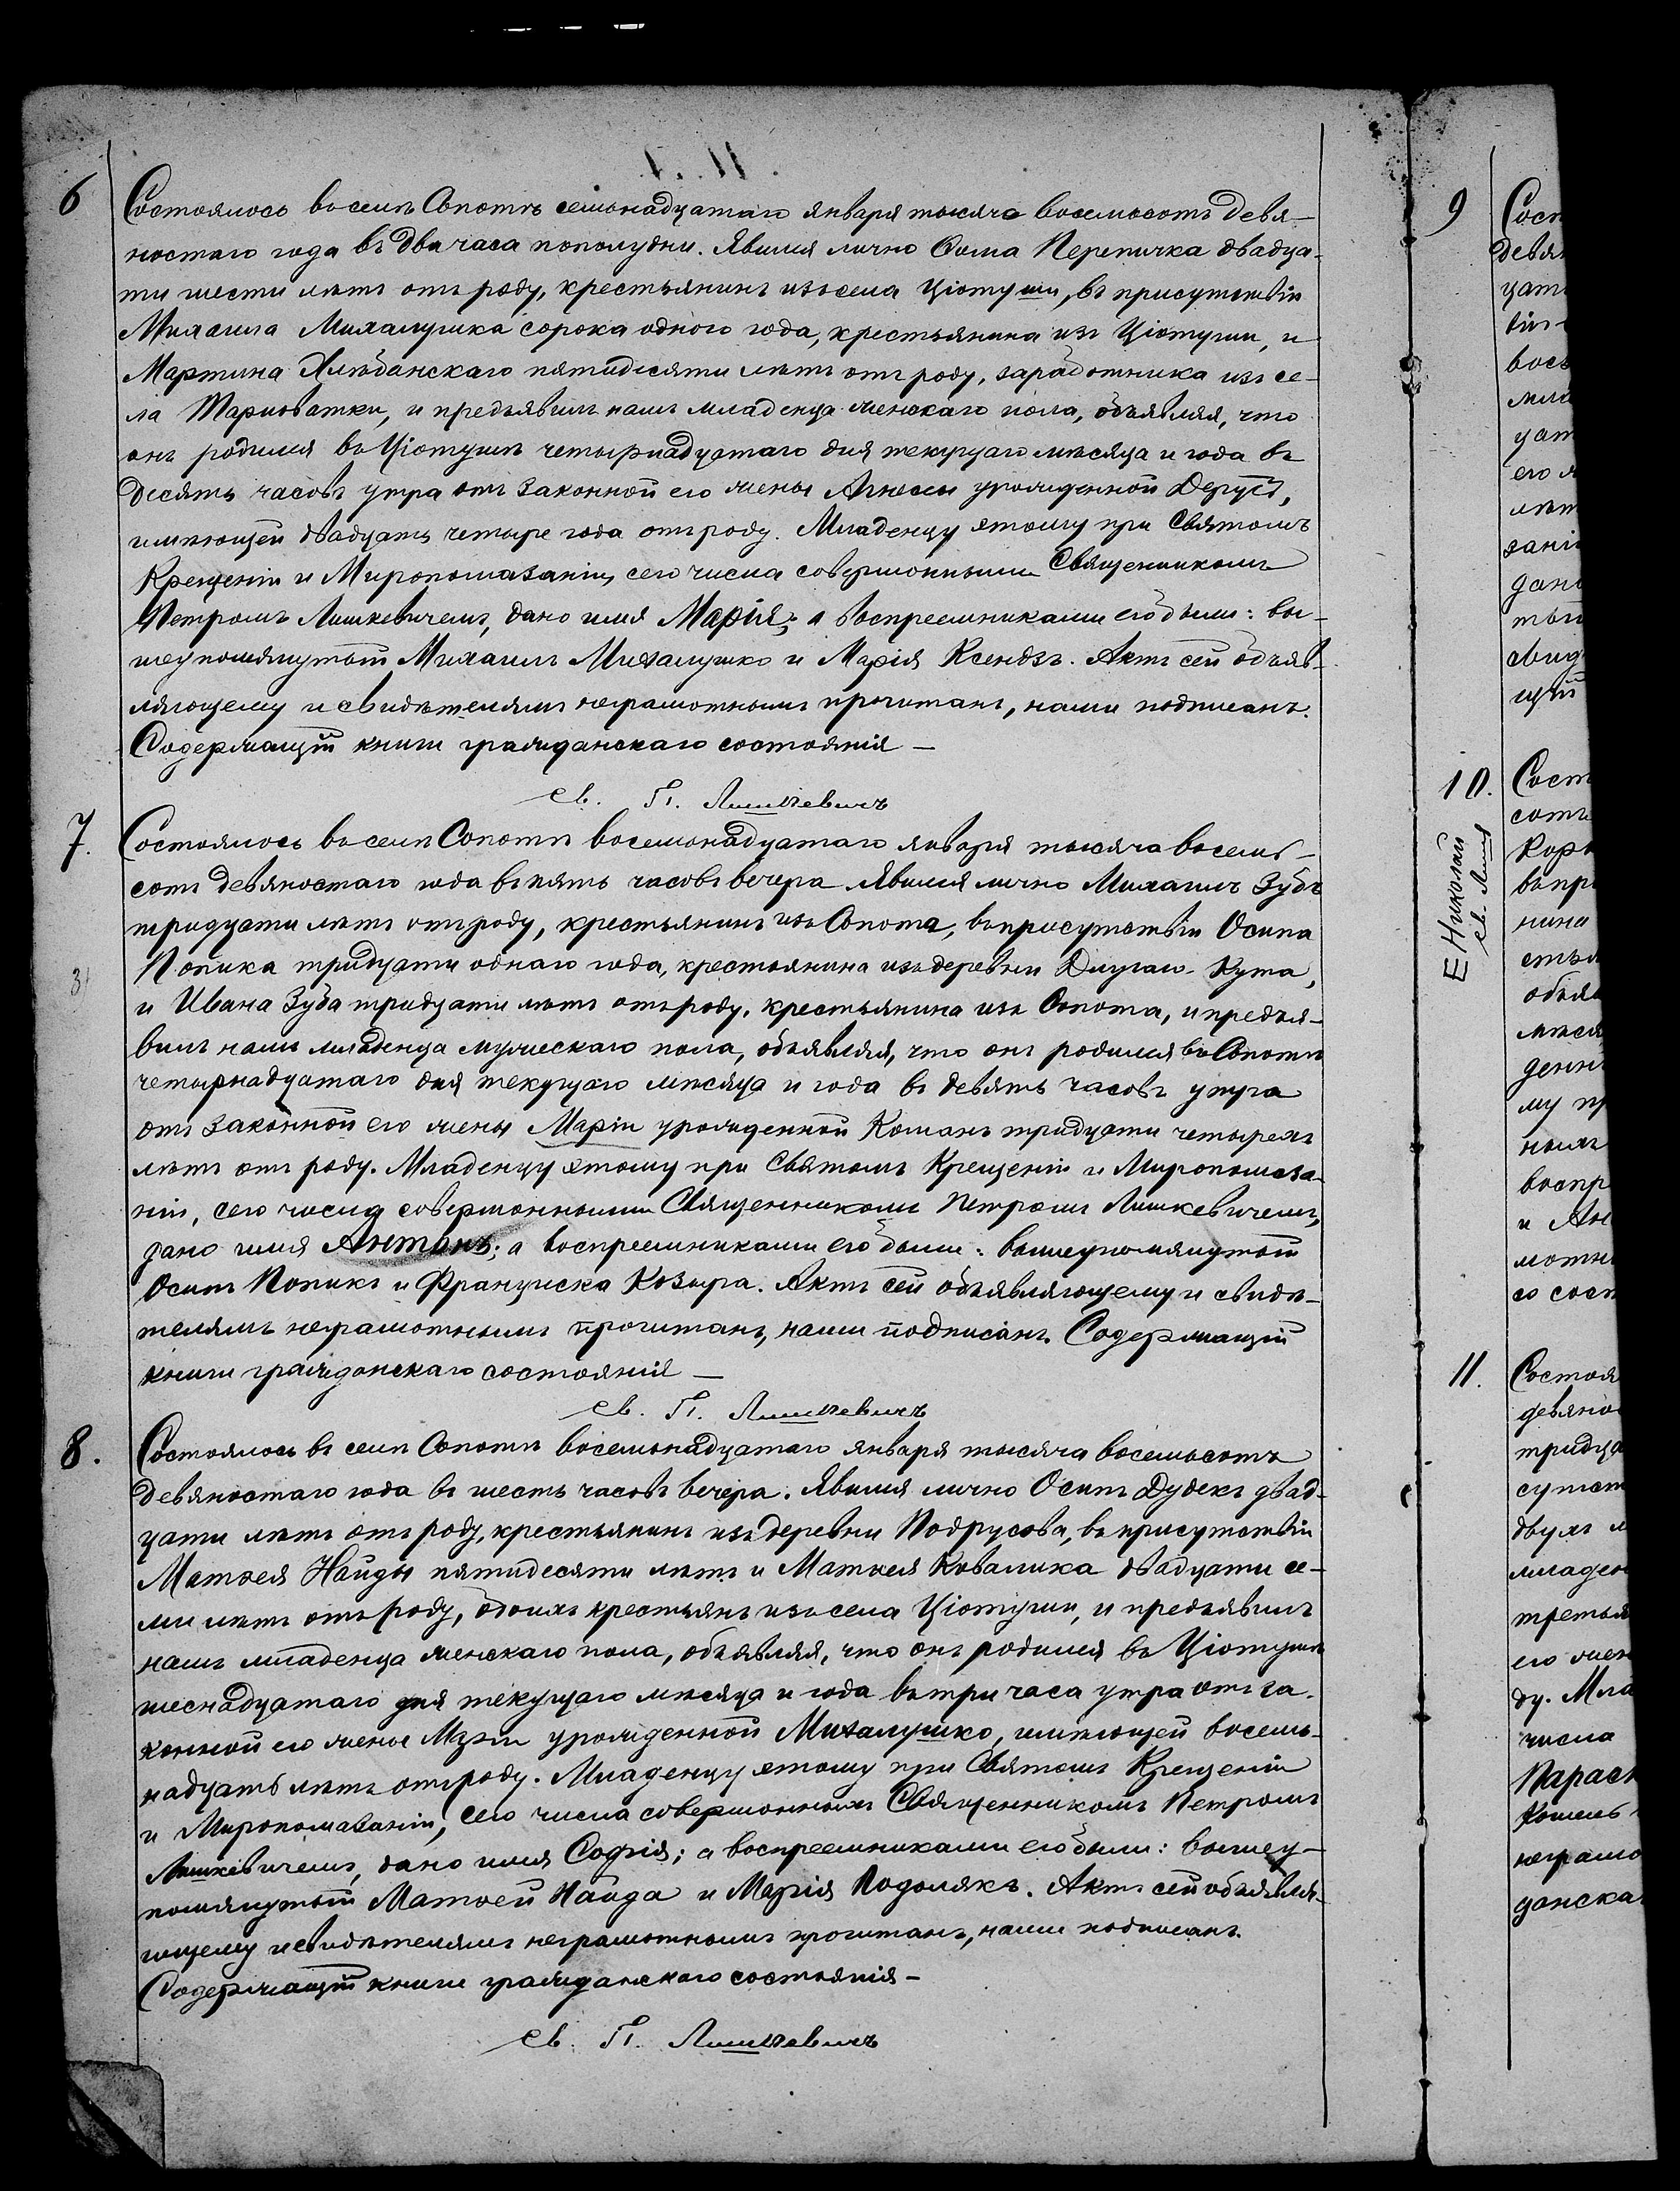 6
Состоялось въ селѣ Сопотѣ семьнадцатаго января тысяча восемьсотъ девя-
ностаго года въ два часа пополудни. Явился лично Ѳома Перепичка двадца-
ти шести лѣтъ отъ роду, крестьянинъ изъ села Ціотуши, въ присутствіи
Михаила Михалушка сорока одного года, крестьянина изъ Ціотуши, и
Мартина Хлѣбанскаго пятидесяти лѣтъ отъ роду, заработника изъ се-
ла Тарноватки, и предъявилъ намъ младенца женскаго пола, объявляя, что
онъ родился въ Ціотушѣ четырнадцатаго дня текущаго мѣсяца и года въ
десять часовъ утра отъ законной его жены Агнесы урожденной Дерусъ,
имѣющей двадцать четыре года отъ роду. Младенцу этому при Святомъ
Крещеніи и Миропомазаніи, сего числа совершонными Священникомъ
Петромъ Лишкевичемъ, дано имя Марія; а воспреемниками его были: вы-
шеупомянутый Михаилъ Михалушко и Марія Ксендзъ. Актъ сей объяв-
ляющему и свидѣтелямъ неграмотнымъ прочитанъ, нами подписанъ.
Содержащій книги гражданскаго состоянія —
св. П. Лишкевичъ
7.
Состоялось въ селѣ Сопотѣ восемьнадцатаго января тысяча восемь-
сотъ девяностаго года въ пять часовъ вечера Явился лично Михаилъ Зубъ
тридцати лѣтъ отъ роду, крестьянинъ изъ Сопота, въ присутствіи Осипа
Попика тридцати одного года, крестьянина изъ деревни Длугаго-Кута,
и Ивана Зуба тридцати лѣтъ отъ роду, крестьянина изъ Сопота, и предъя-
вилъ намъ младенца мужескаго пола, объявляя, что онъ родился въ Сопотѣ
четырнадцатаго дня текущаго мѣсяца и года въ девять часовъ утра
отъ законной его жены Маріи урожденной Команъ тридцати четырехъ
лѣтъ отъ роду. Младенцу этому при Святомъ Крещеніи и Миропомаза-
ніи, сего числа совершонными Священникомъ Петромъ Лишкевичемъ,
дано имя Антонъ; а воспреемниками его были: вышеупомянутый
Осипъ Попикъ и Франциска Козыра. Актъ сей объявляющему и свидѣ-
телямъ неграмотнымъ прочитанъ, нами подписанъ. Содержащій
книги гражданскаго состоянія —
св. П. Лишкевичъ
8.
Состоялось въ селѣ Сопотѣ восемьнадцатаго января тысяча восемьсотъ
девяностаго года въ шесть часовъ вечера. Явился лично Осипъ Дудекъ двад-
цати лѣтъ отъ роду, крестьянинъ изъ деревни Подрусова, въ присутствіи
Матѳея Найды пятидесяти лѣтъ и Матѳея Ковалика двадцати се-
ми лѣтъ отъ роду, обоихъ крестьянъ изъ села Ціотуши, и предъявилъ
намъ младенца женскаго пола, объявляя, что онъ родился въ Ціотушѣ
шеснадцатаго дня текущаго мѣсяца и года въ три часа утра отъ за-
конной его жены Маріи урожденной Михалушко, имѣющей восемь-
надцать лѣтъ отъ роду. Младенцу этому при Святомъ Крещеніи
и Миропомазаніи, сего числа совершонныхъ Священникомъ Петромъ
Лишкевичемъ, дано имя Софія; а воспреемниками его были: вышеу-
помянутый Матѳей Найда и Марія Подолякъ. Актъ сей объявля-
ющему и свидѣтелямъ неграмотнымъ прочитанъ, нами подписанъ.
Содержащій книги гражданскаго состоянія —
св. П. Лишкевичъ
9
Сост
девян
цат
восе
его
дано
10.
Е Николай
св. Лиш
Сост
сотъ
нина
объя
денн
му пр
воспр
11.
Состоя
девяно
тридца
сутст
двухъ
младен
третья
его жен
ду. Мла
числа
Параск
неграмо
данска